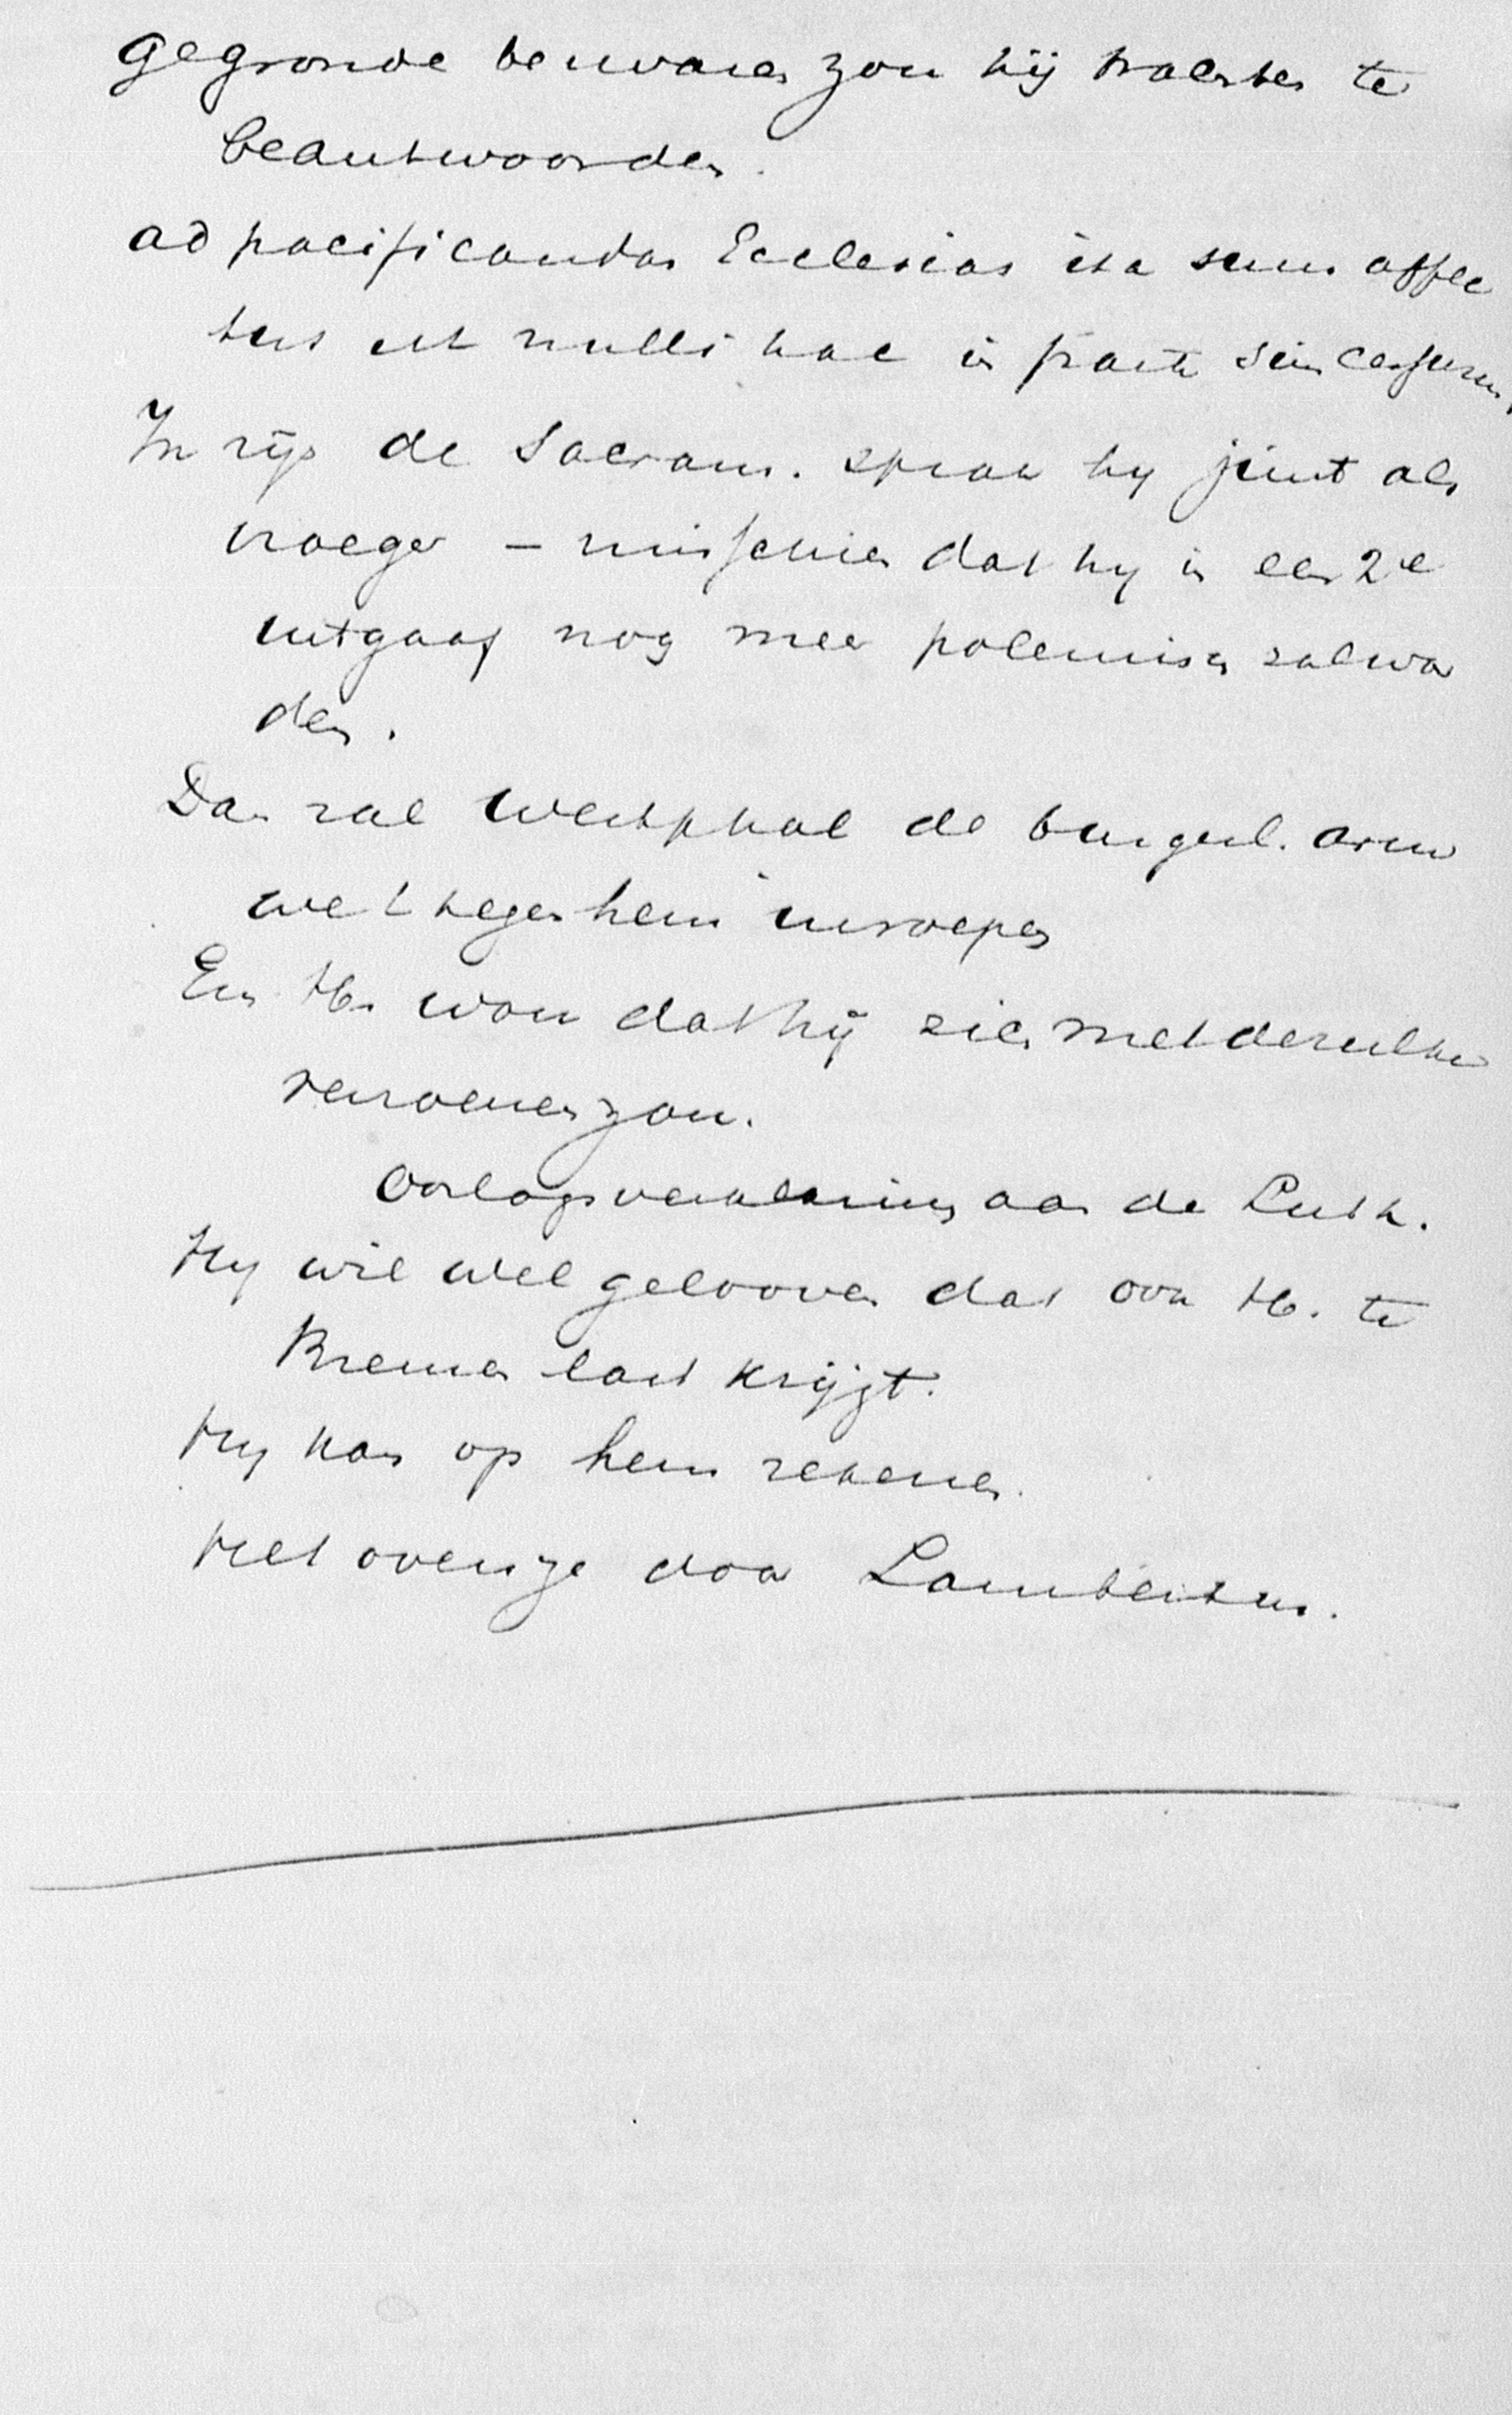 Gegronde bezwaren zou hij trachten te
beantwoorden.
ad pacificandas Ecclesias ita sum affec
tus ut nulli hac in parte sim cessurus.
In zijn de Sacram. sprak hy juist als
vroeger — misschien dat hy in een 2e
uitgaaf nog meer polemisch zal wor
den.
Dan zal Westphal de burgerl. arm
wel tegen hem inroepen
En H. wou dat hij zich met dezulken
verzoenen zou.
Oorlogsverklaring aan de Luth.
Hy wil wel gelooven dat ook H. te
Bremen last krijgt.
Hy kan op hem rekenen.
Het overige door Lambertus.